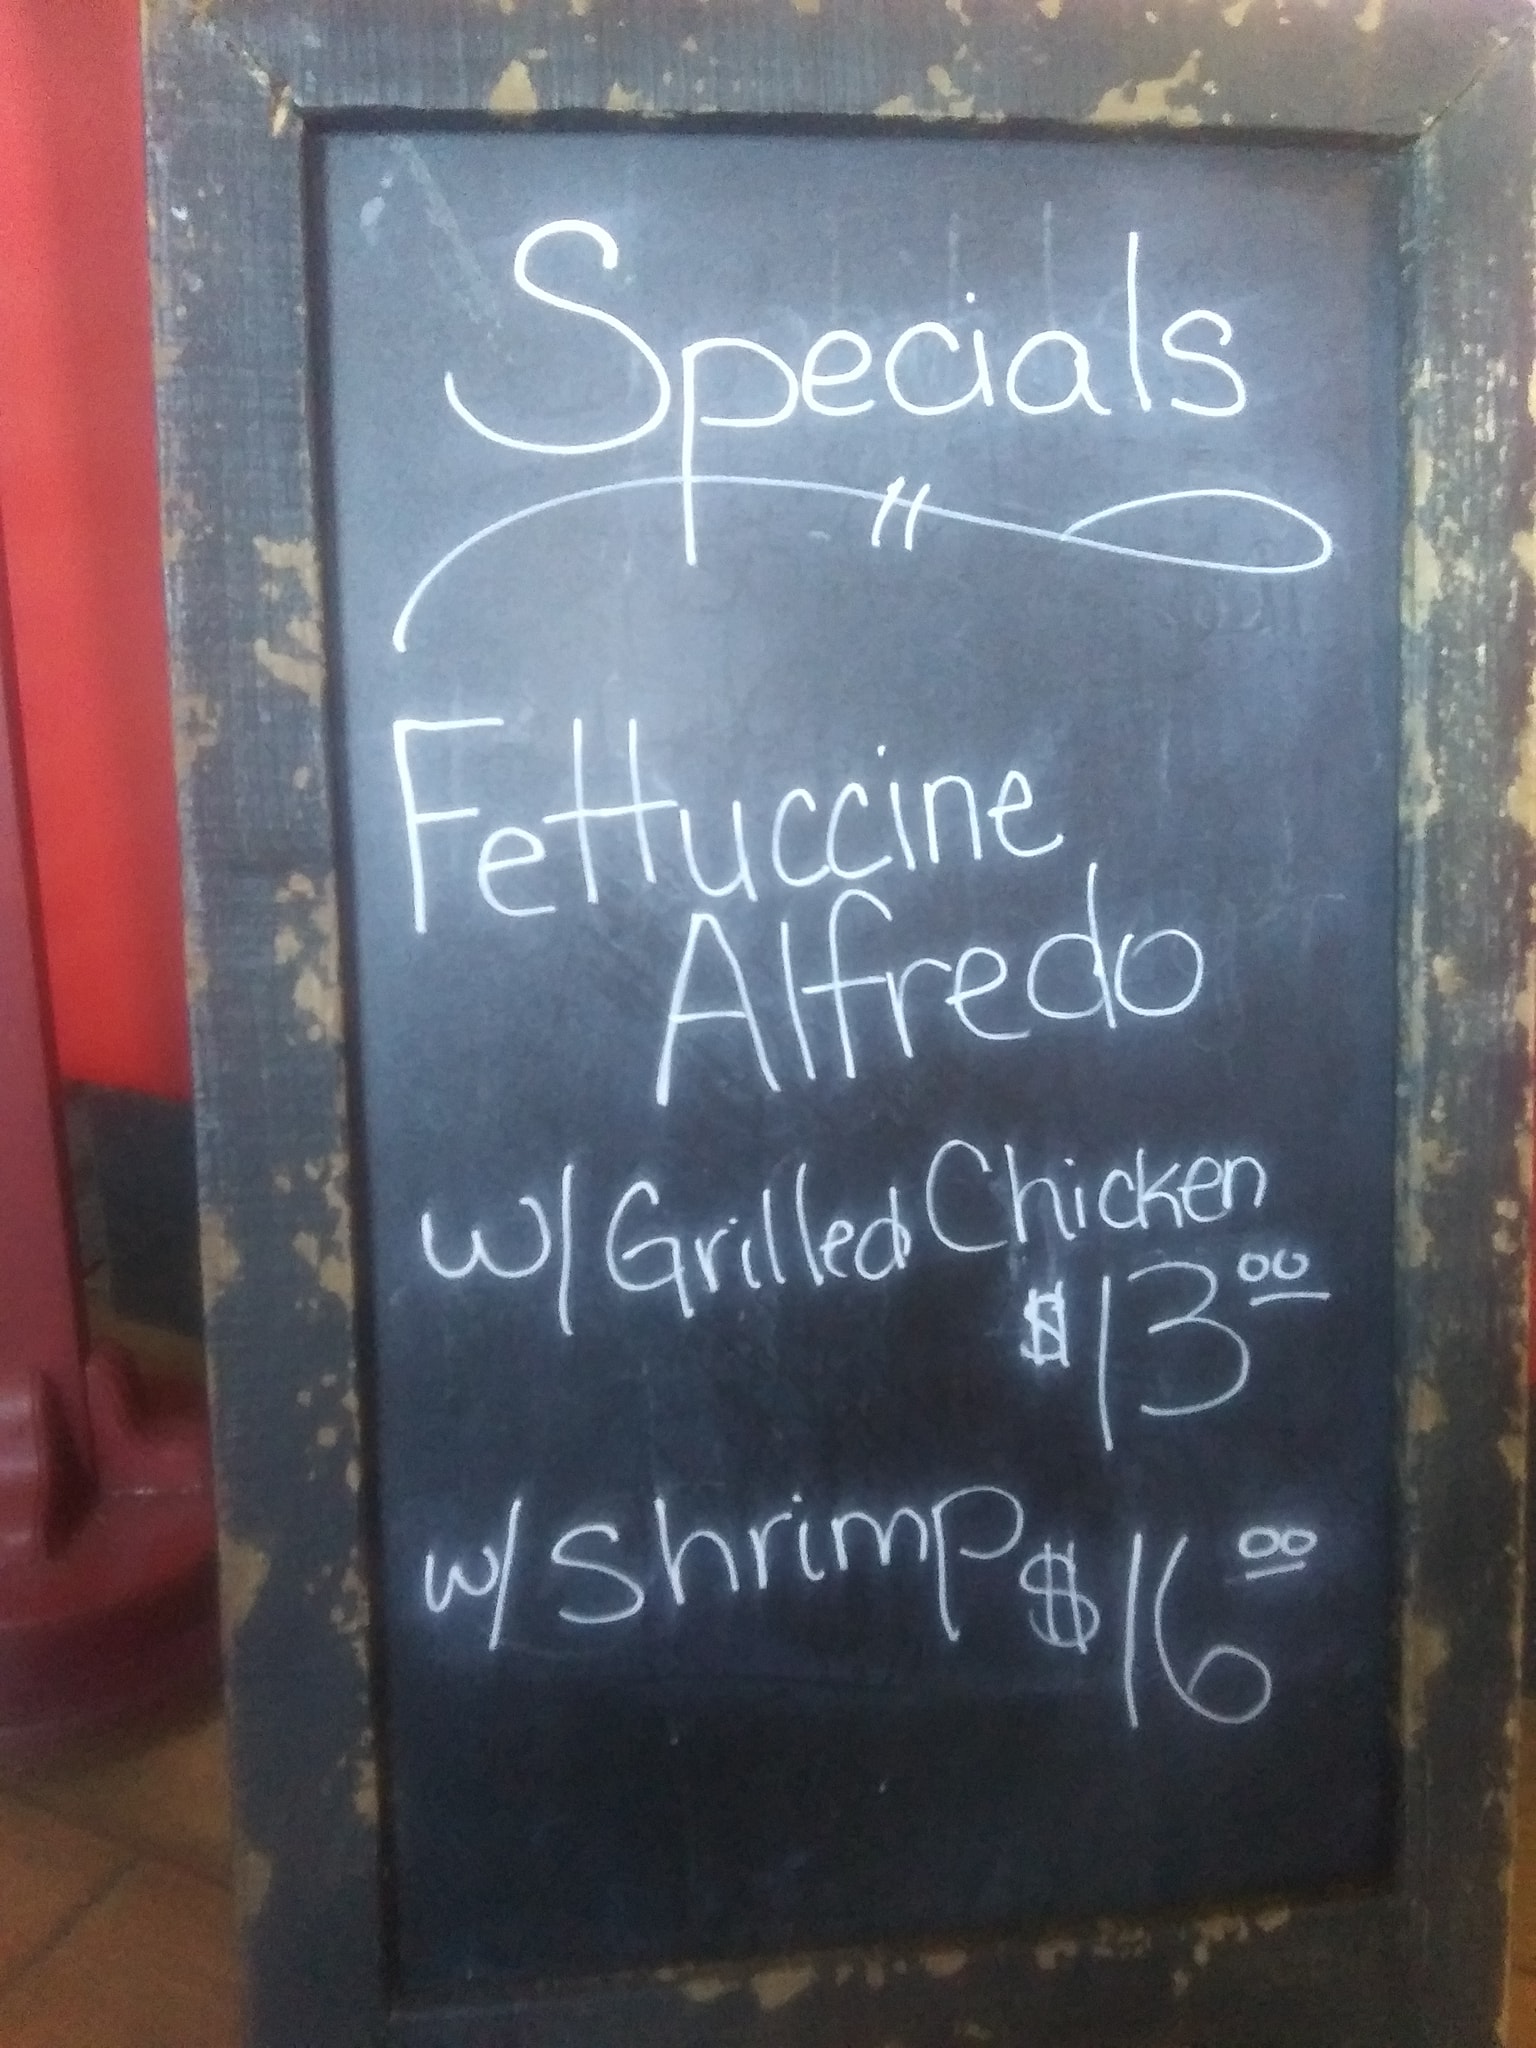 Specials
Fettuccine
Alfredo
w/ Grilled Chicken
$13.00
w/ Shrimp $16.00